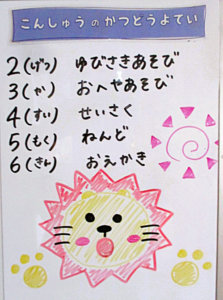 こんしゅうのかつどうよてい
2(げつ) ゆびさきあそび
3(か) おへやあそび
4(すい) せいさく
5(もく) ねんど
6(きん) おえかき